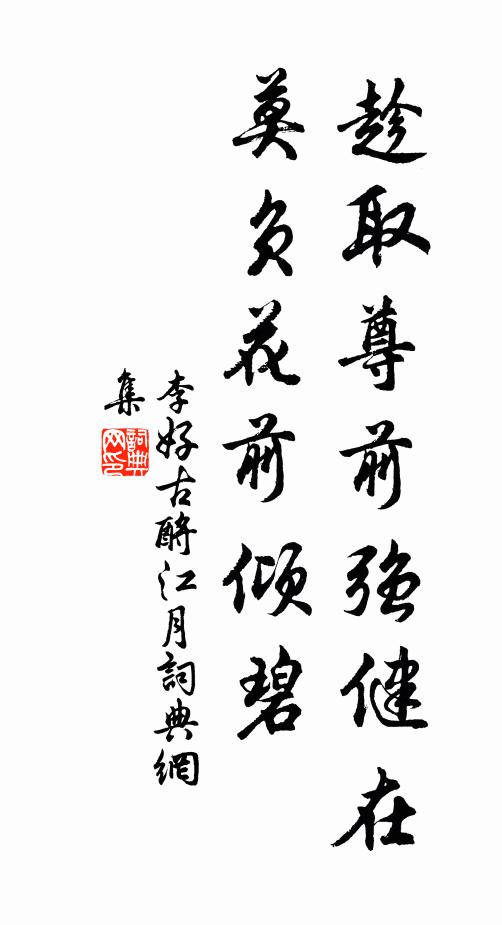 趁取尊前強健在
莫負花前傾碧
李好古酹江月詞典網
集
詞典网印